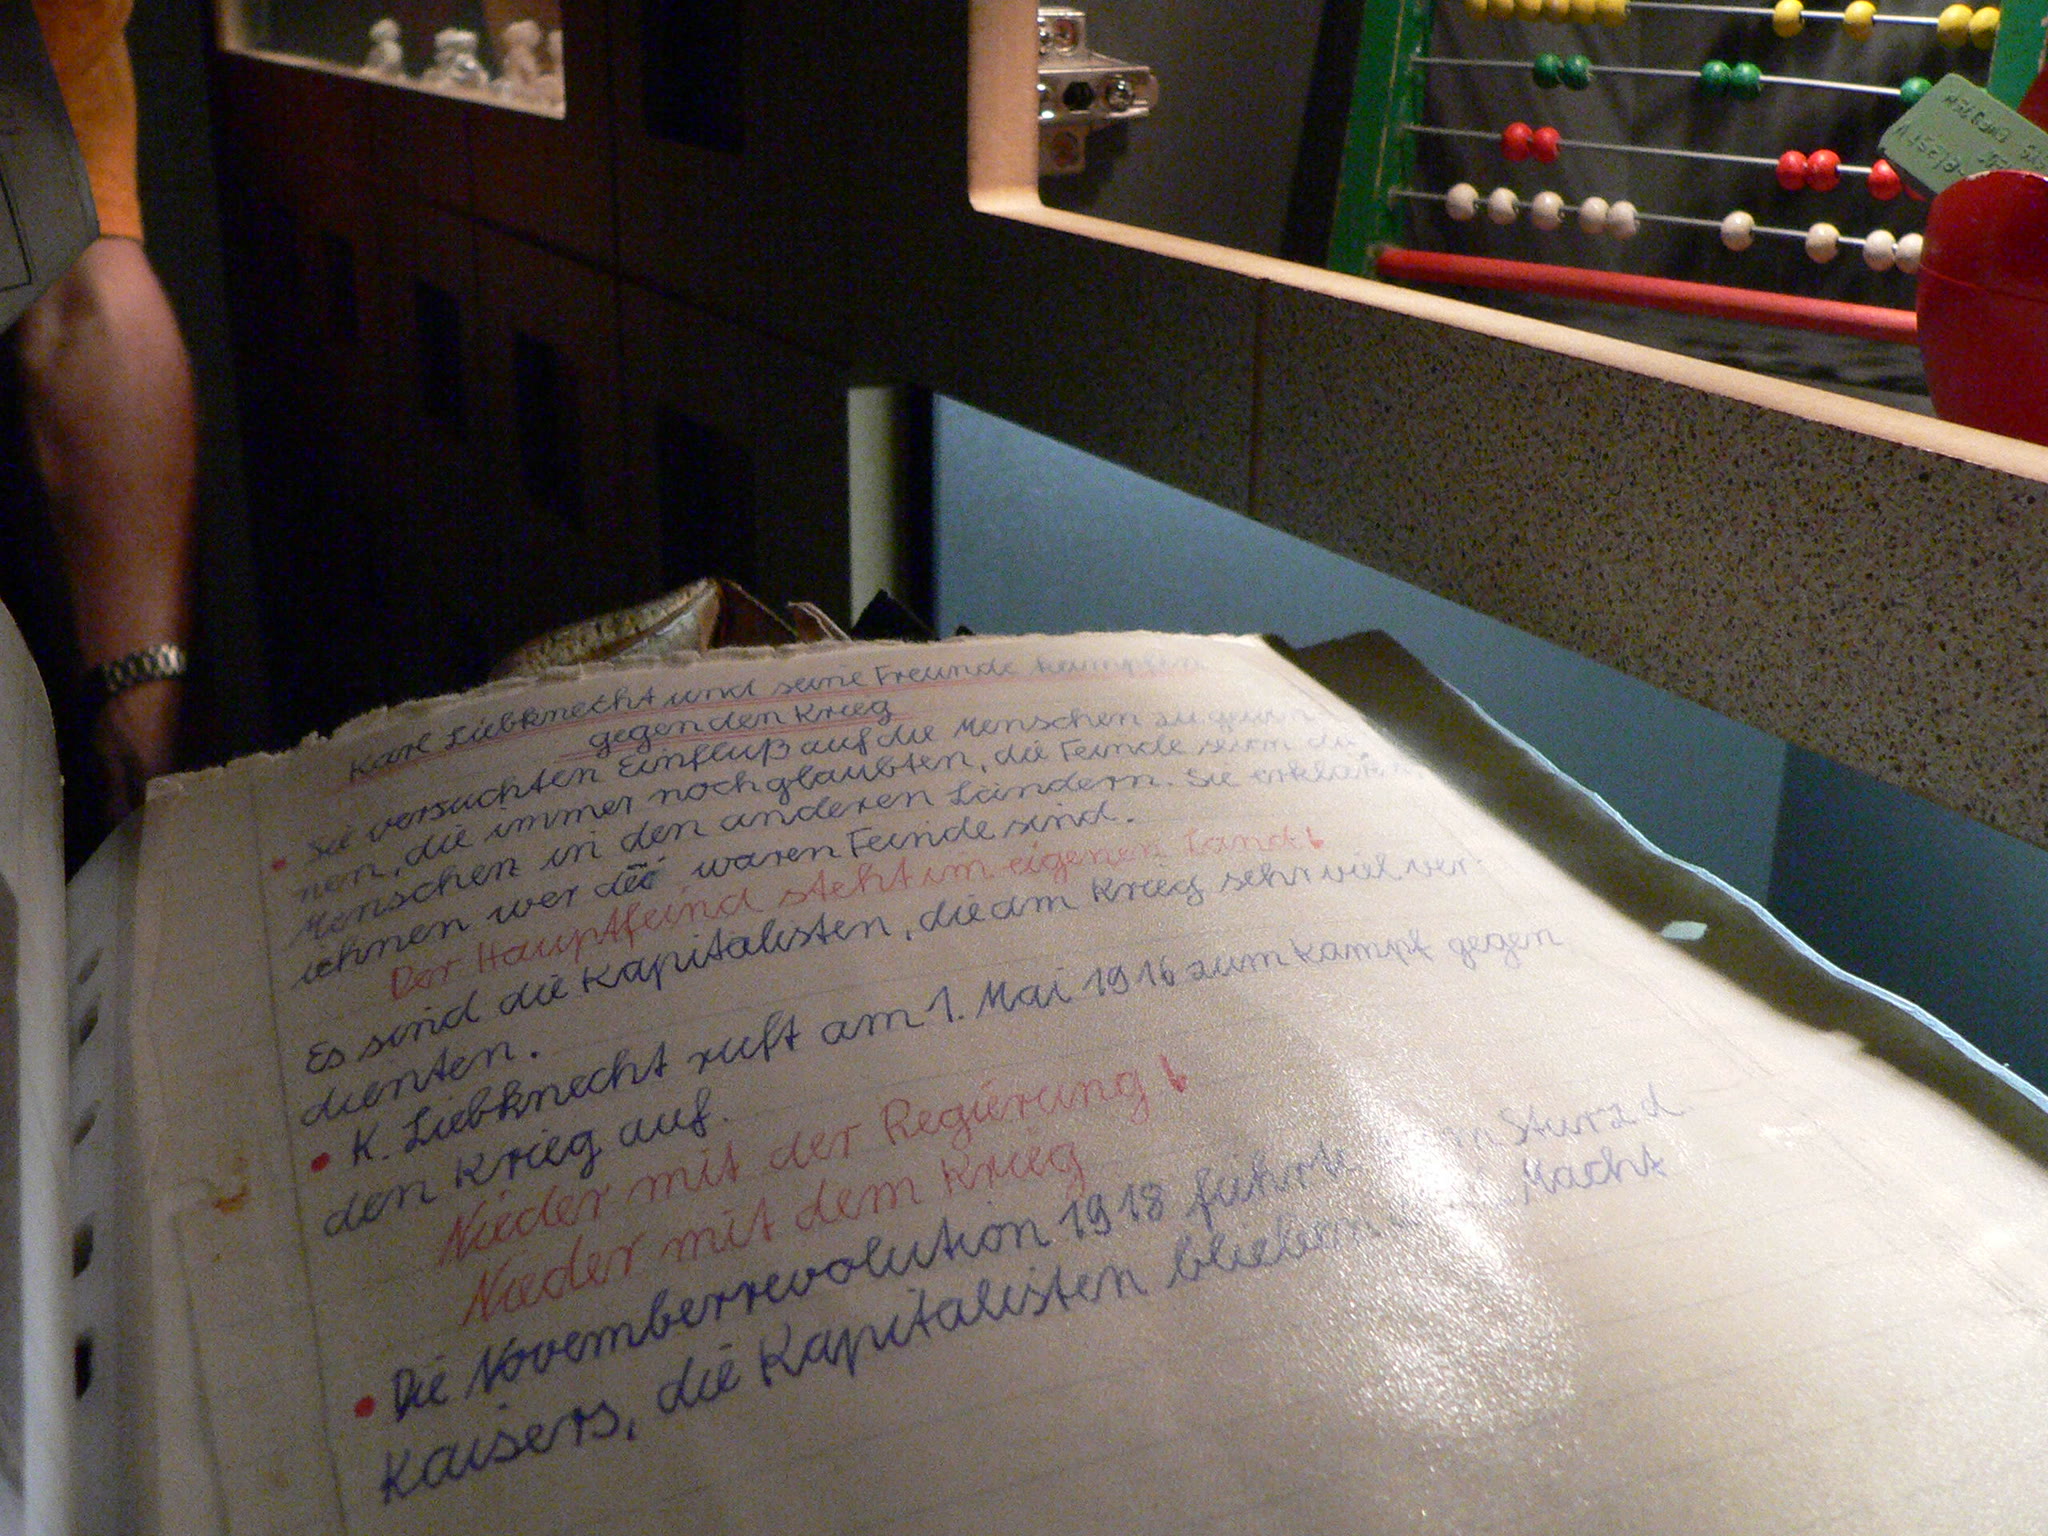 Karl Liebknecht und seine Freunde kämpfen
gegen den Krieg
• Sie versuchten Einfluß auf die Menschen zu gewin-
nen, die immer noch glaubten, die Feinde seien die
Menschen in den anderen Ländern. Sie erklärten
ihnen wer die waren Feinde sind.
Der Hauptfeind steht im eigenen Land!
Es sind die Kapitalisten, die am Krieg sehr viel ver-
dienten.
• K. Liebknecht ruft am 1. Mai 1916 zum Kampf gegen
den Krieg auf.
Nieder mit der Regierung!
Nieder mit dem Krieg
• Die Novemberrevolution 1918 führte zum Sturz d.
Kaisers, die Kapitalisten blieben Macht